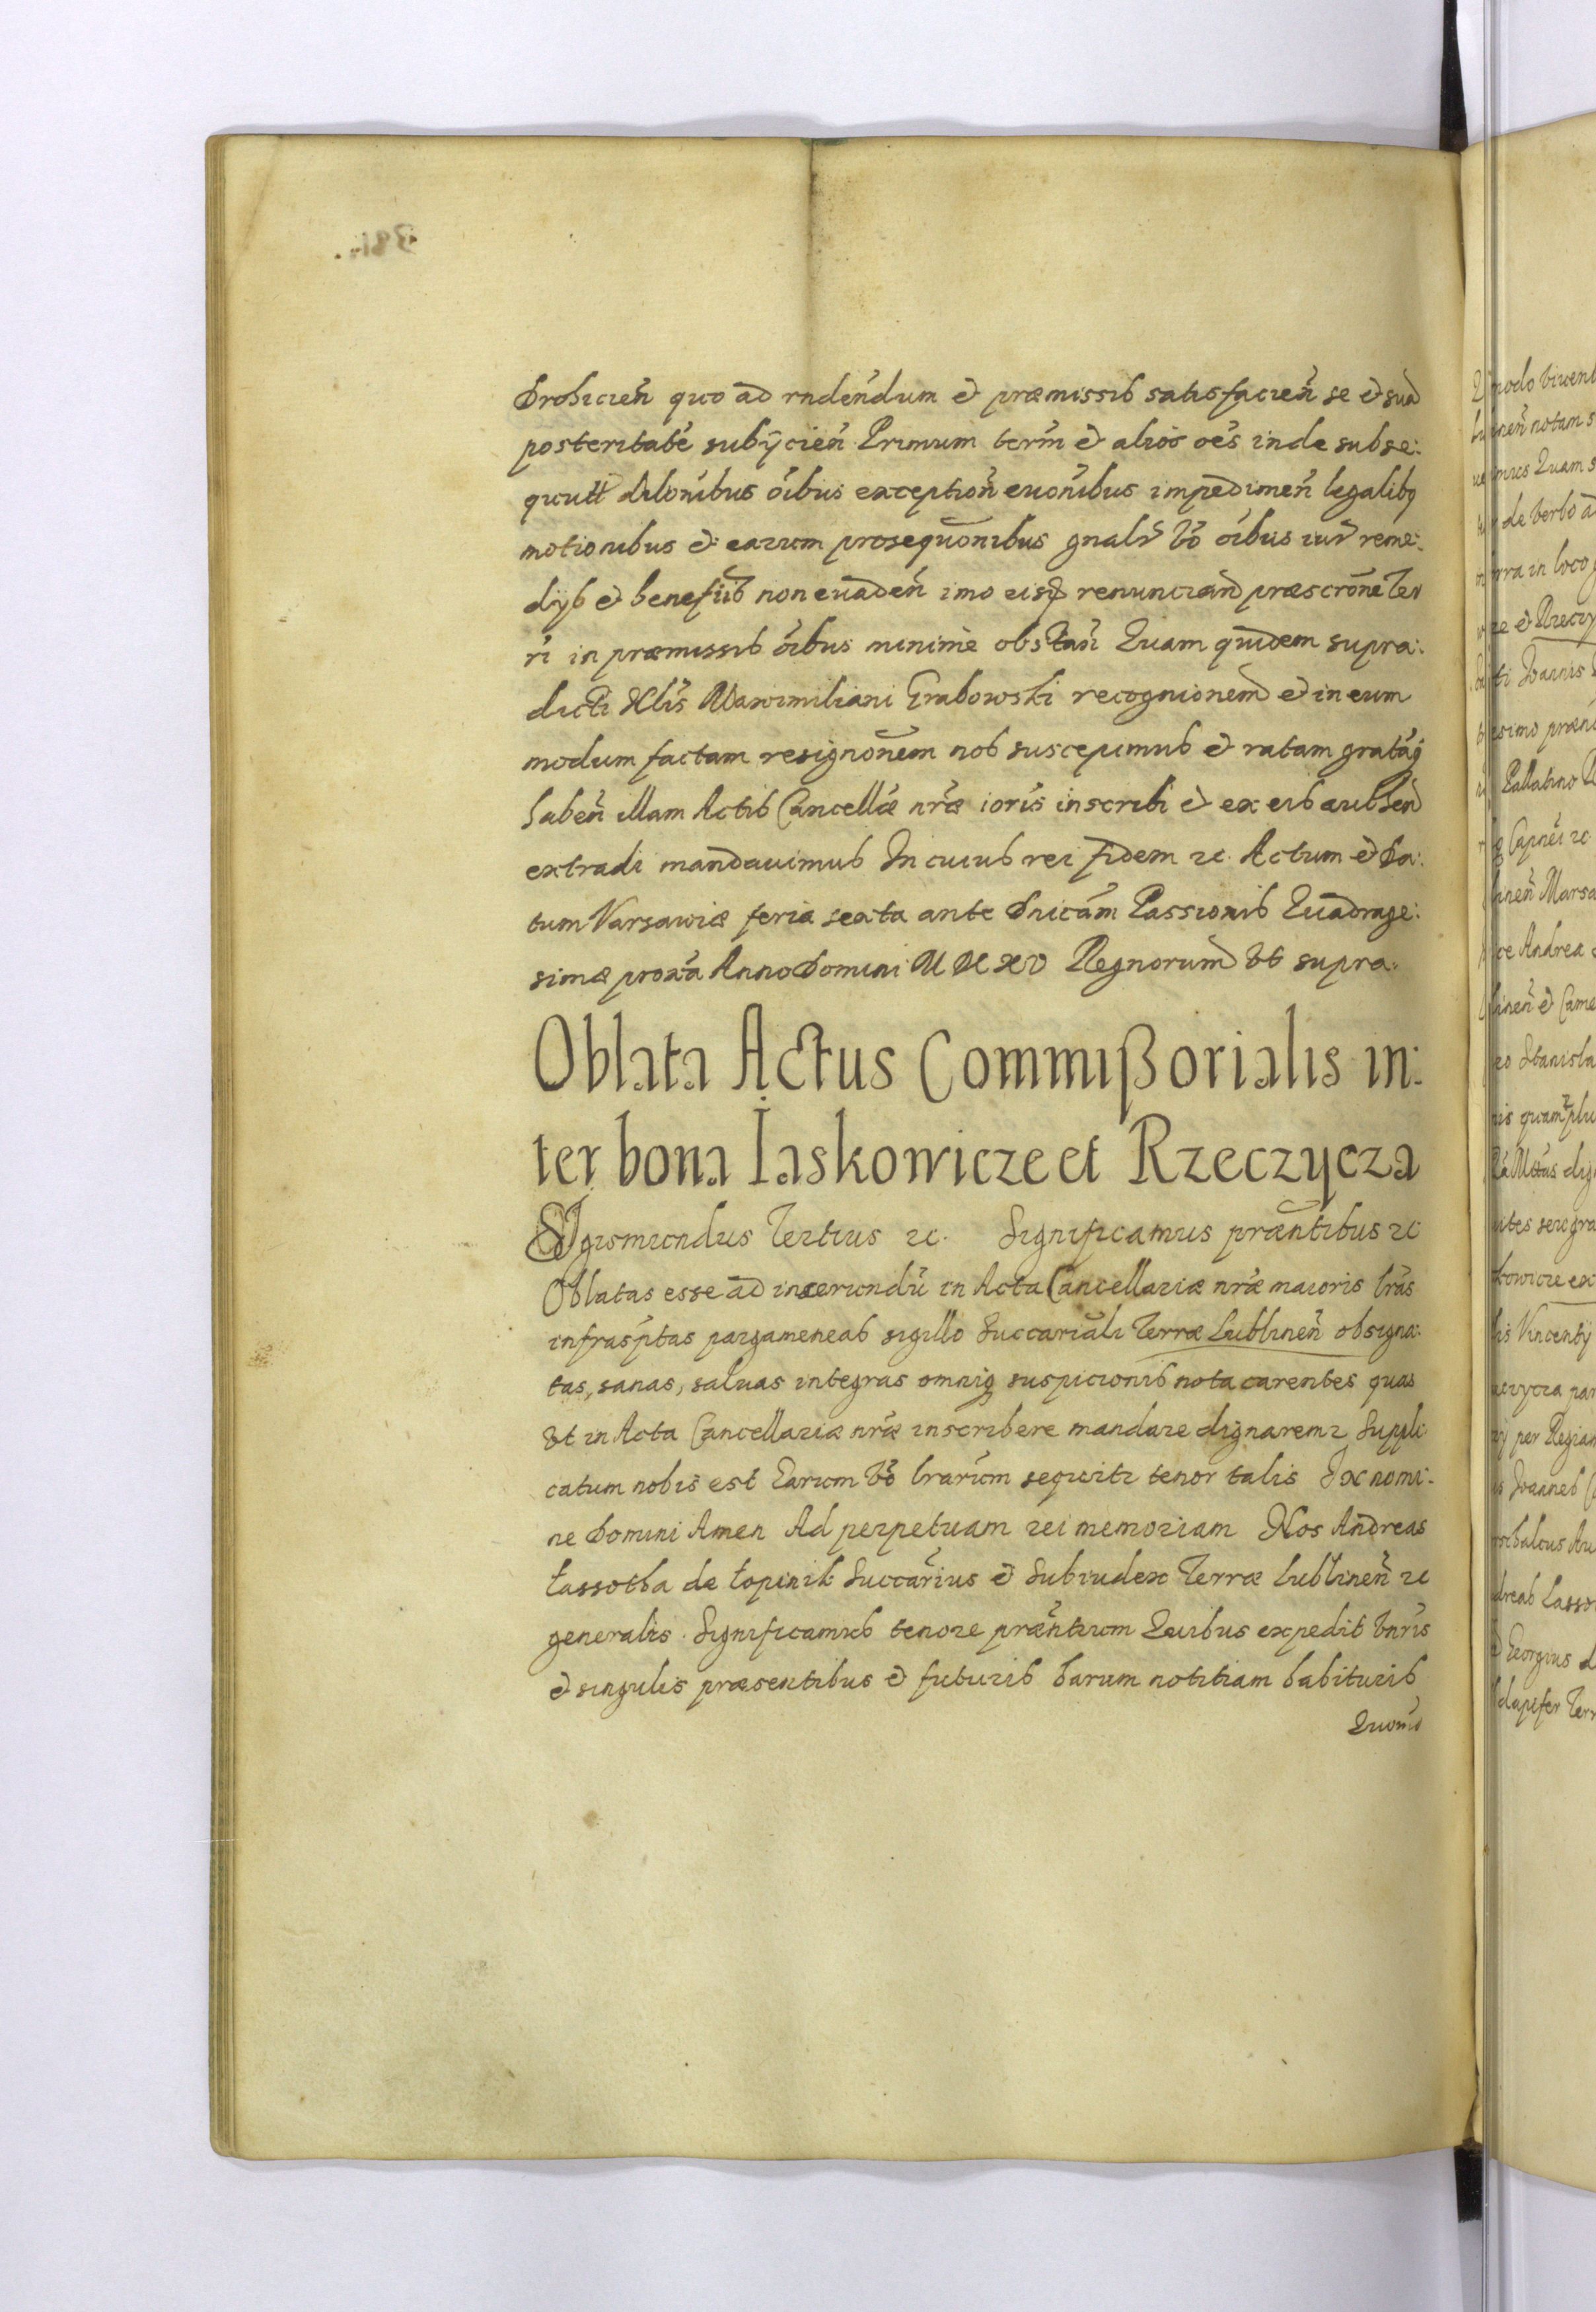 Drohicień quo ad rndéndum et præmissis satisfacień se et suā
posteritatē subijcień Primum term̄ et alios oēs inde subse:
quutt dilonibus oibus exceptioń euonibus impedimeń legalibq
motionibus et earum prosequonibus gnalr vō oibus iur reme:
dijs et benefiis non euadeń imo eisq renunciań præscrōne ter
ri in præmissis oibus minime obstań Quam quidem supra:
dicti Nlis Maximiliani Grabowski recognionem et in eum
modum factam resignonem nos suscepimus et ratam gratāq
habeń illam Actis Cancellæ nræ ioris inscribi et ex eis authen
extradi mandauimus In cuius rei fidem &c. Actum et Da:
tum Varsawiæ feria sexta ante Dnicam Passionis Quadrage:
simæ proxa Anno Domini M DC XV Regnorum vt supra.
Oblata Actus Commißorialis in:
ter bona Iaskowicze et Rzeczycza
SIgismundus Tertius &c. Significamus præntibus &c
Oblatas esse ad inserundū in Acta Cancellariæ nræ maioris lras
infrasptas pargameneas sigillo Succariali Terræ Lublineń obsigna:
tas, sanas, saluas integras omniq suspicionis nota carentes quas
vt in Acta Cancellariæ nræ inscribere mandare dignaremr Suppli:
catum nobis est Earum vō lrarum sequitr tenor talis In nomi:
ne Domini Amen Ad perpetuam rei memoriam Nos Andreas
Łassotha de Łopinik Succarius et Subiudex Terræ Lublineń &c
generalis. Significamus tenore præntium Quibus expedit vnris
et singulis præsentibus et futuris harum notitiam habituris
Quomō